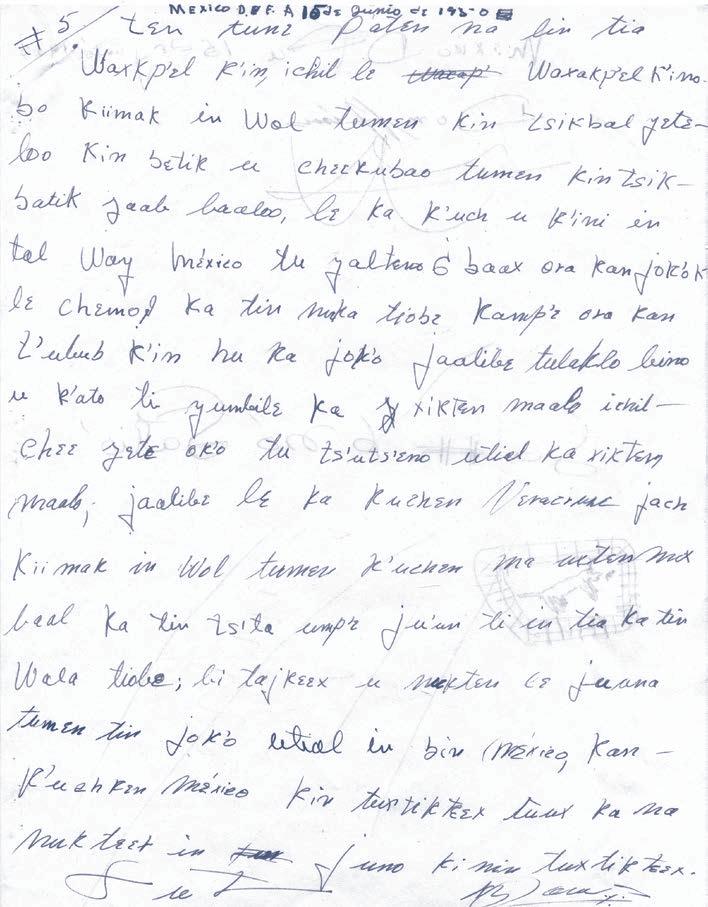 MEXICO D.F. A 15 de Junio de 195-0
#5. ten tune Paten na lin tia
Waxkp'el K'in, ichil le Waxakp'el K'ino-
bo Kiimak in Wol tumen Kin tsikbal yete-
loo Kin betik u checkubao tumen Kin tsik-
batik yaab baaloo, le Ka K'uch u K'ini in
tal Way México tu yalteno baax ora Kan jok'ok
le chemo? Ka tin nuka tiobe Kamp'e ora Kan
t'ulub K'in hu Ka jok'o jaalibe tulaklo bino
u K'ato ti yumbile Ka xikten maalo ichil-
chee yete ok'o tu ts'uts'eno utial Ka xikten
maalo; jaalibe le Ka Kuchen Veracruz jach
Kiimak in Wol tumen K'uchen ma uchten mix
baal Ka tin ts'ita ump'e ju'un ti in tia Ka tin
Wala tiobe; bi tajkeex u nukten le juuna
tumen tin jok'o utial in bin México, Kan-
K'uchken México Kin tuxtikteex tuux Ka na
nukteex in Juno Ki nin tuxtikteex.